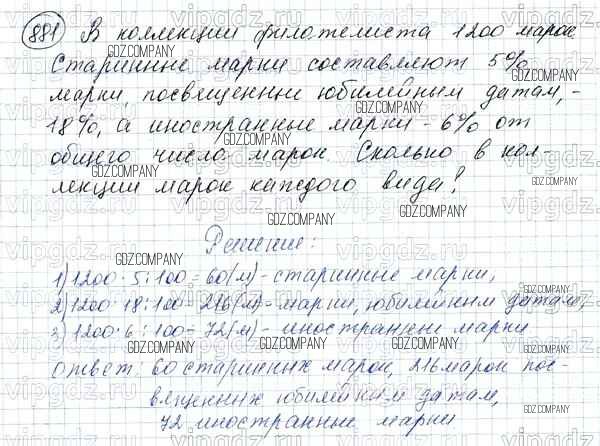 881 В коллекции филателиста 1200 марок
Старинные марки составляют 5%
марки, посвященные юбилейным датам, -
18%, а иностранные марки - 6% от
общего число марок. Сколько в кол-
лекции марок каждого вида?
Решение:
1) 1200 · 5 : 100 = 60 (м) - старинные марки,
2) 1200 · 18 : 100 = 216 (м) - марки, юбилейным датам,
3) 1200 · 6 : 100 = 72 (м) - иностранные марки
ответ: 60 старинных марок, 216 марок пос-
вященных юбилейным датам,
72 иностранные марки